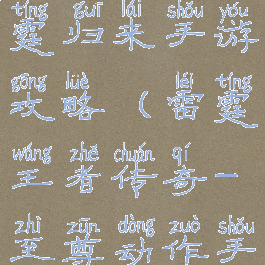 tíng guī lái shǒu yóu
霆归来手游
gōng lüè léi tíng
攻略(雷霆
wáng zhě chuán qí
王者传奇一
zhì zūn dòng zuò shǒu
至尊动作手